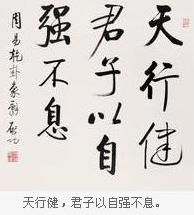 天行健
君子以自
强不息
周易乾卦象辞 启功
天行健，君子以自强不息。